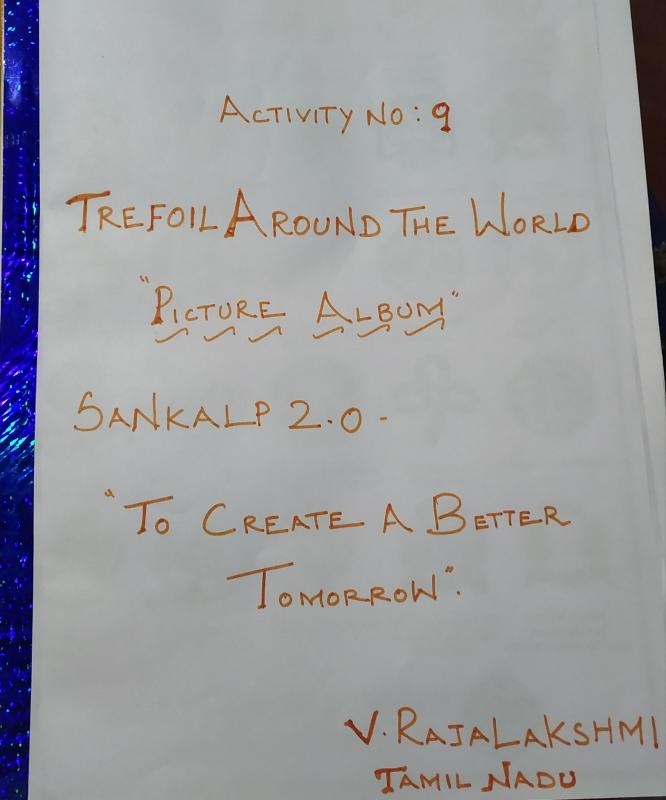 ACTIVITY NO: 9
TREFOIL AROUND THE WORLD
"PICTURE ALBUM"
SANKALP 2.0 -
"TO CREATE A BETTER
TOMORROW".
V. RAJALAKSHMI
TAMIL NADU